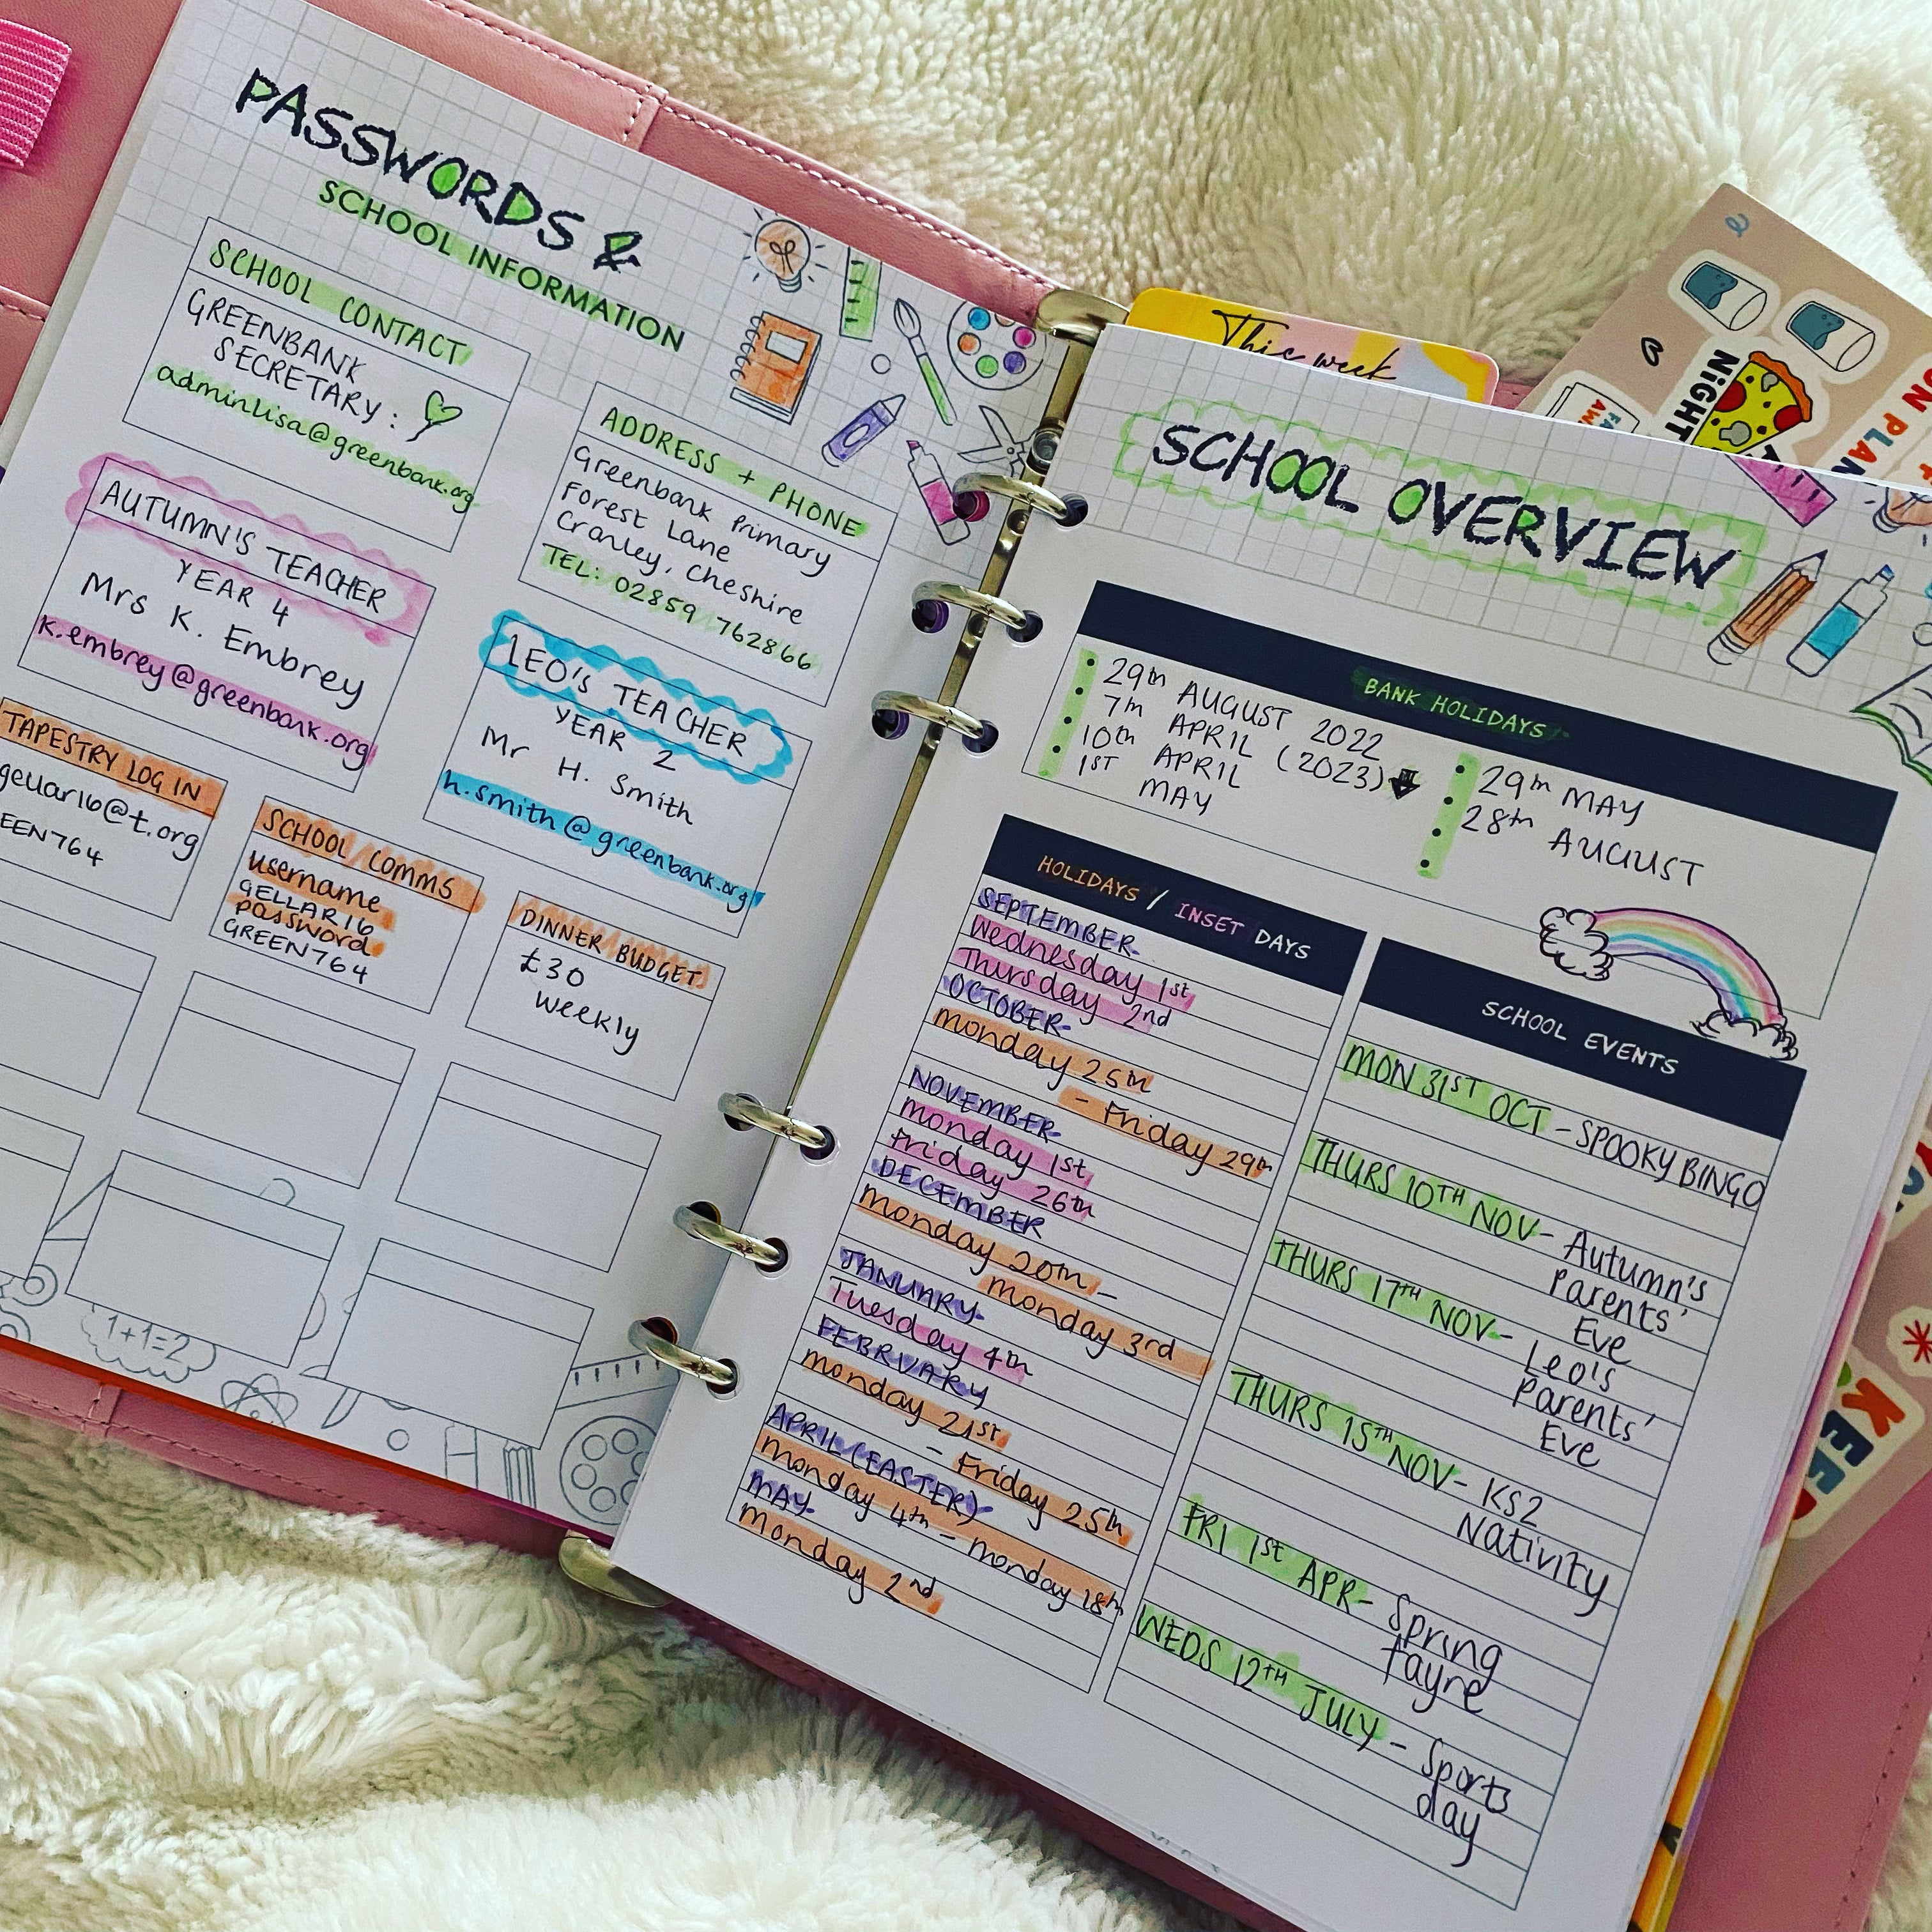 PASSWORDS &
SCHOOL INFORMATION
SCHOOL CONTACT
GREENBANK
SECRETARY:
adminlisa@greenbank.org
ADDRESS + PHONE
Greenbank Primary
Forest Lane
Cranley, Cheshire
TEL: 02859 762866
AUTUMN'S TEACHER
YEAR 4
Mrs K. Embrey
k.embrey@greenbank.org
LEO'S TEACHER
YEAR 2
Mr H. Smith
h.smith@greenbank.org
TAPESTRY LOG IN
gellar16@t.org
EEN764
SCHOOL COMMS
username
GELLAR16
password
GREEN764
DINNER BUDGET
£30
weekly
1+1=2
This week
NIGHT
SCHOOL OVERVIEW
BANK HOLIDAYS
29th AUGUST 2022
7th APRIL (2023)
10th APRIL
1ST MAY
29th MAY
28th AUGUST
HOLIDAYS / INSET DAYS
SEPTEMBER
Wednesday 1st
Thursday 2nd
OCTOBER
Monday 25th
- Friday 29th
NOVEMBER
Monday 1st
Friday 26th
DECEMBER
Monday 20th -
Monday 3rd
JANUARY
Tuesday 4th
FEBRUARY
Monday 21st
- Friday 25th
APRIL (EASTER)
Monday 4th - Monday 18th
MAY
Monday 2nd
SCHOOL EVENTS
MON 31ST OCT - SPOOKY BINGO
THURS 10TH NOV - Autumn's
Parents'
Eve
THURS 17TH NOV - Leo's
Parents'
Eve
THURS 15TH NOV - KS2
Nativity
FRI 1st APR - Spring
fayre
WEDS 12TH JULY - Sports
day